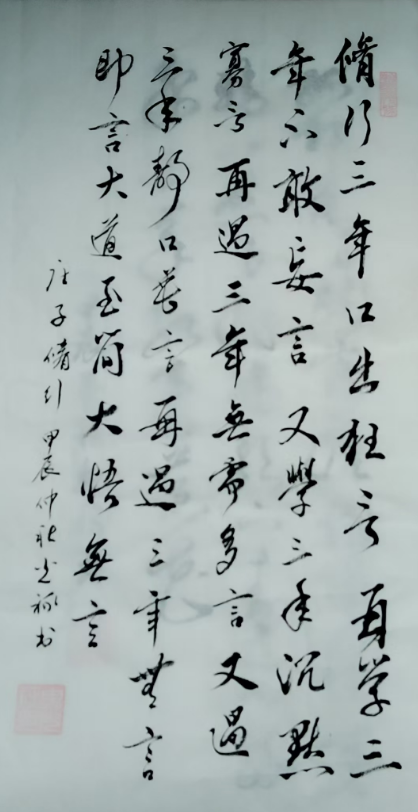 脩行三年口出狂言再学三
年不敢妄言又學三年沉默
寡言再過三年無需多言又過
三年靜口言再過三年無言
即言大道至簡大悟無言
庄子脩行 甲辰仲秋光书